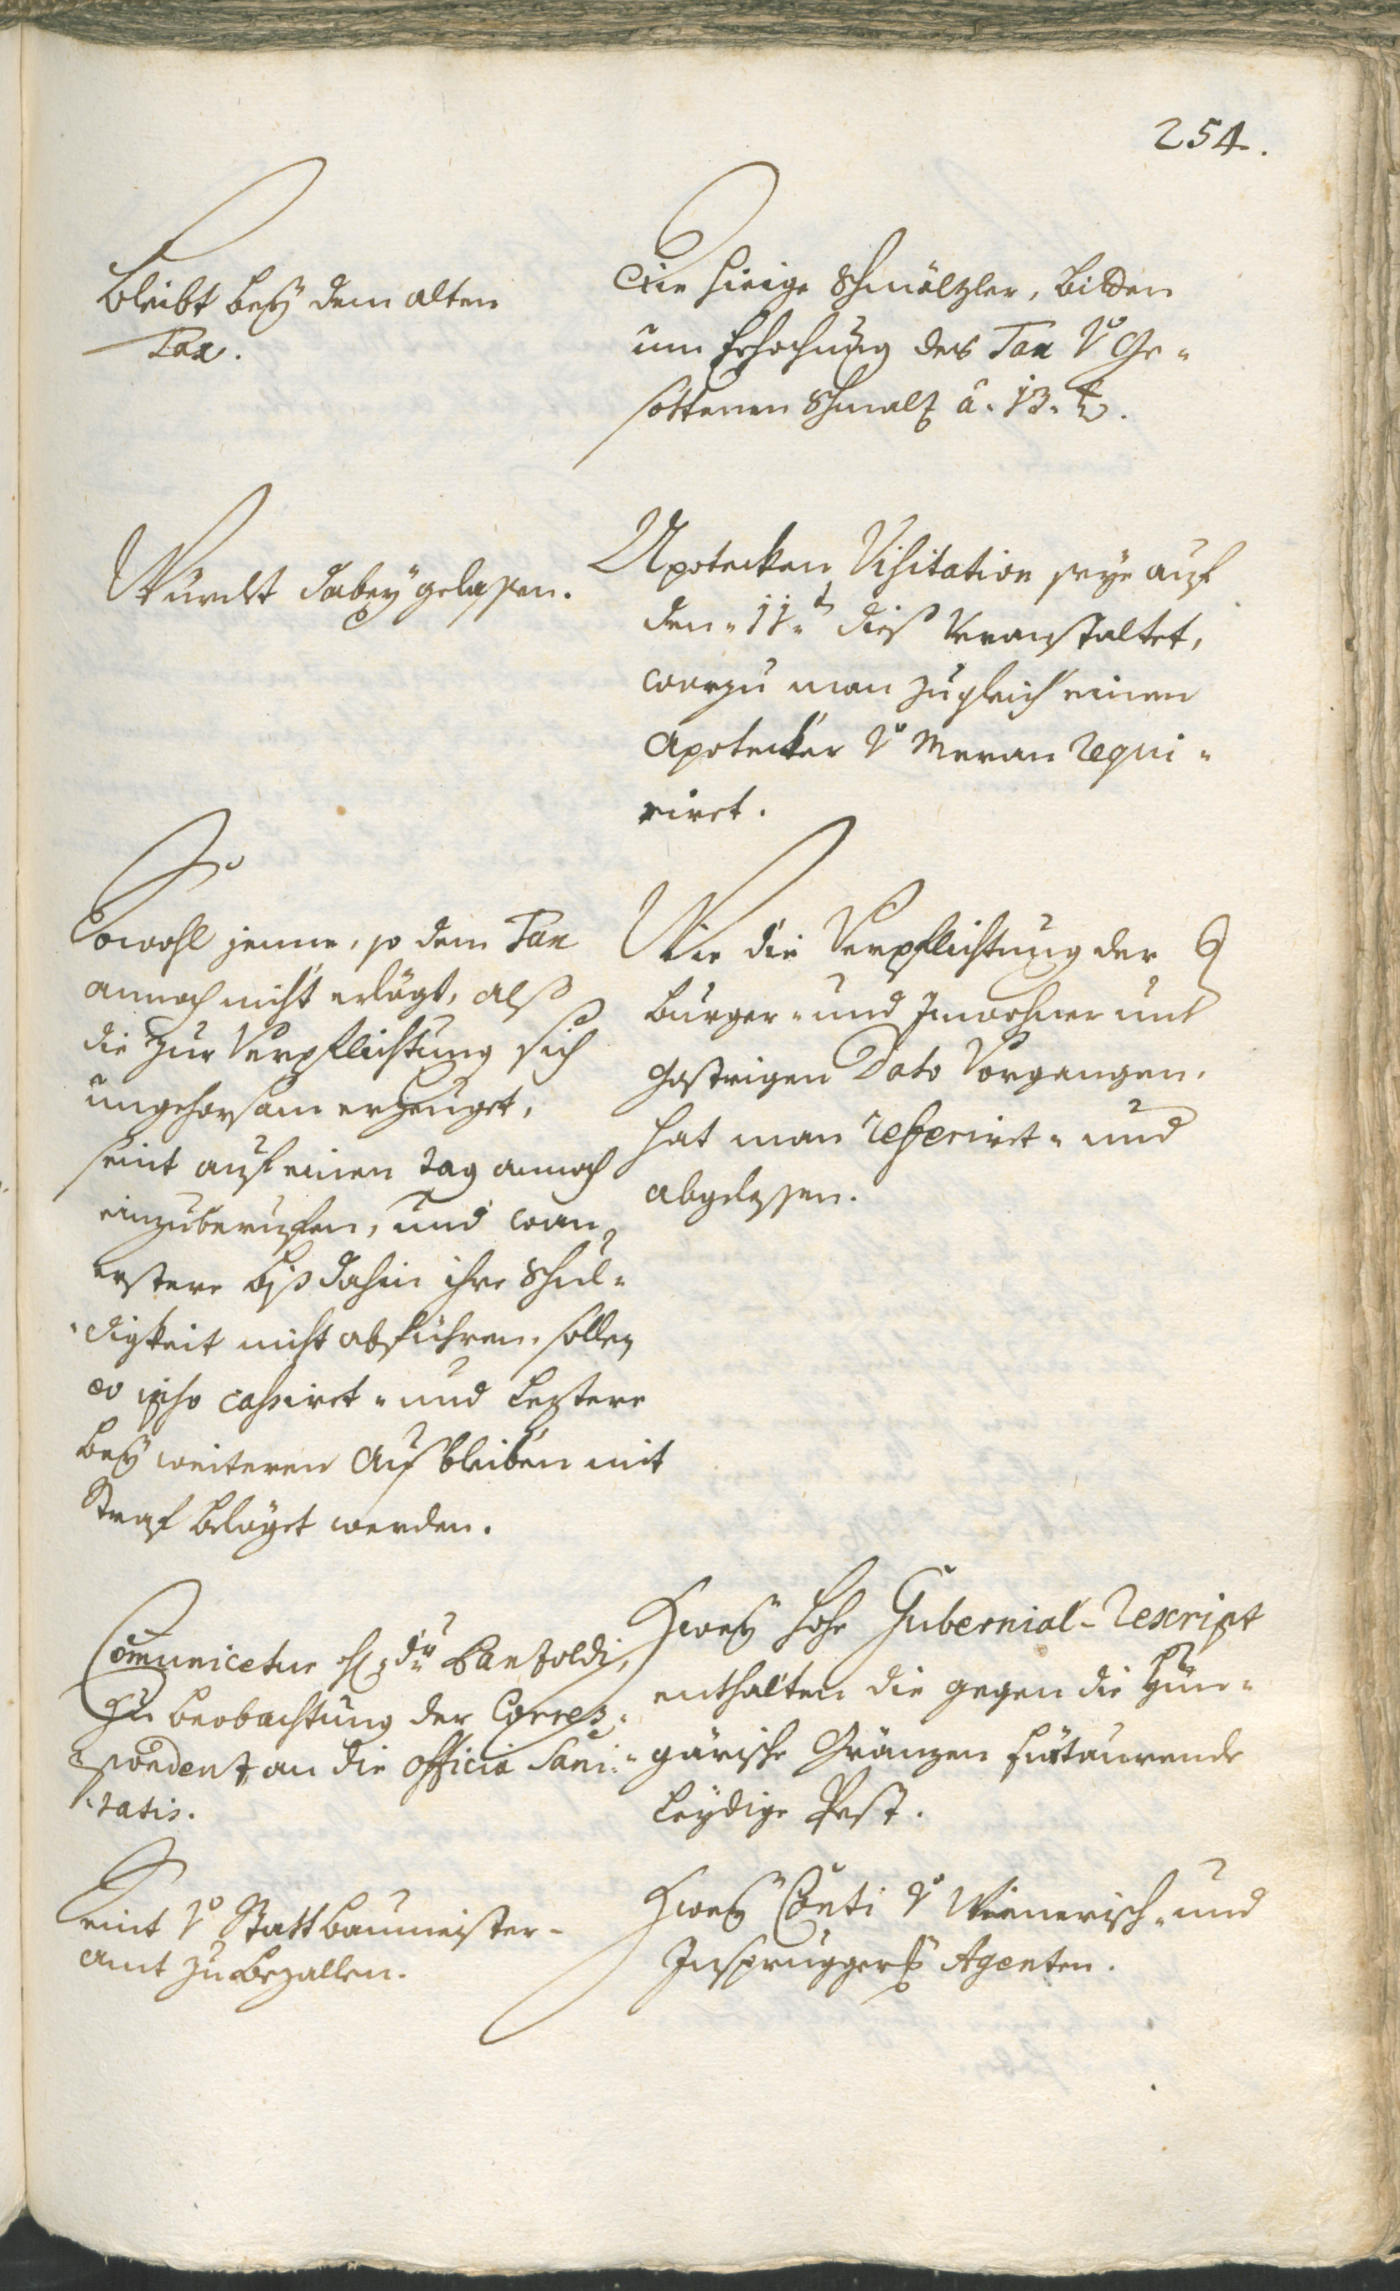 254.
Bleibt bey dem alten
Tax.
Die hieige Schmälzler, bitten
um Erhochung des Tax vo Ge-
sottenen Schmalz â. 13. xr.
Würdet dabey gelassen.
Apotecken Visitation seye auf
den. 11.t dieß Veranstaltet,
worzu man zugleich einen
Apotecker vo Meran requi-
riret.
Sowohl jenne, so dem Tax
annoch nicht erlögt, alß
die zur Verpflichtung sich
ungehorsam erzeuget,
seint auf einen tag annoch
einzuberufen, und wan
erstere biß dahin ihre Schul-
digkeit nicht abführen. sollen
eo ipso cassiret- und leztere
bey weiteren Ausbleiben mit
Straf belöget werden.
Wie die Verpflichtung der
Burger- und Inwohner unt
gestrigen Dato Vorgangen.
hat man referiret- und
abgelesen.
Comunicetur H: dr Bartoldi,
zu beobachtung der Corres-
pondenz an die officia Sani-
tatis.
Zwey hohe Gubernial-Rescript
enthalten die gegen die Hun-
gärische Gränzen
leydige Pest.
Seint vo Stattbaumeister-
amt zu bezallen.
Zwey Conti vo Wienerisch- und
Insprugger Agenten.